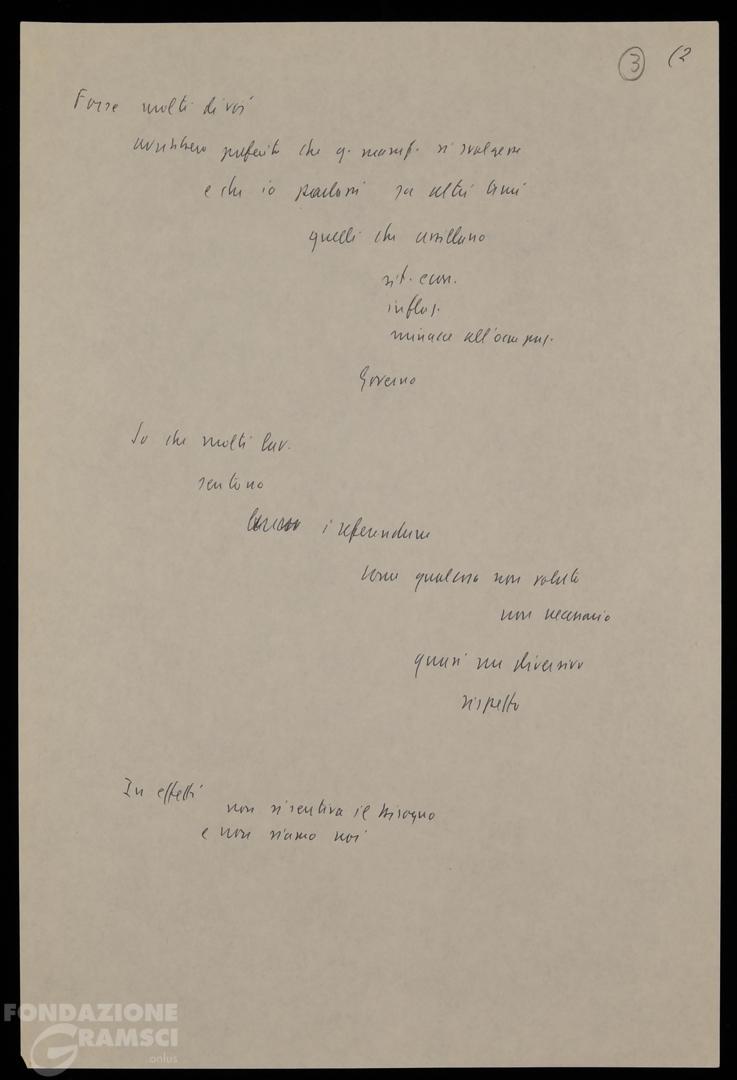 3 (2
Forse molti di voi
avrebbero preferito che q. manif. si svolgesse
e che io parlassi su altri temi
quelli che assillano
sit. econ.
inflaz.
minacce all'occupaz.
Governo
So che molti lav.
sentono
i referendum
come qualcosa non voluto
non necessario
quasi un diversivo
rispetto
In effetti
non si sentiva il bisogno
e non siamo noi
FONDAZIONE
GRAMSCI
onlus